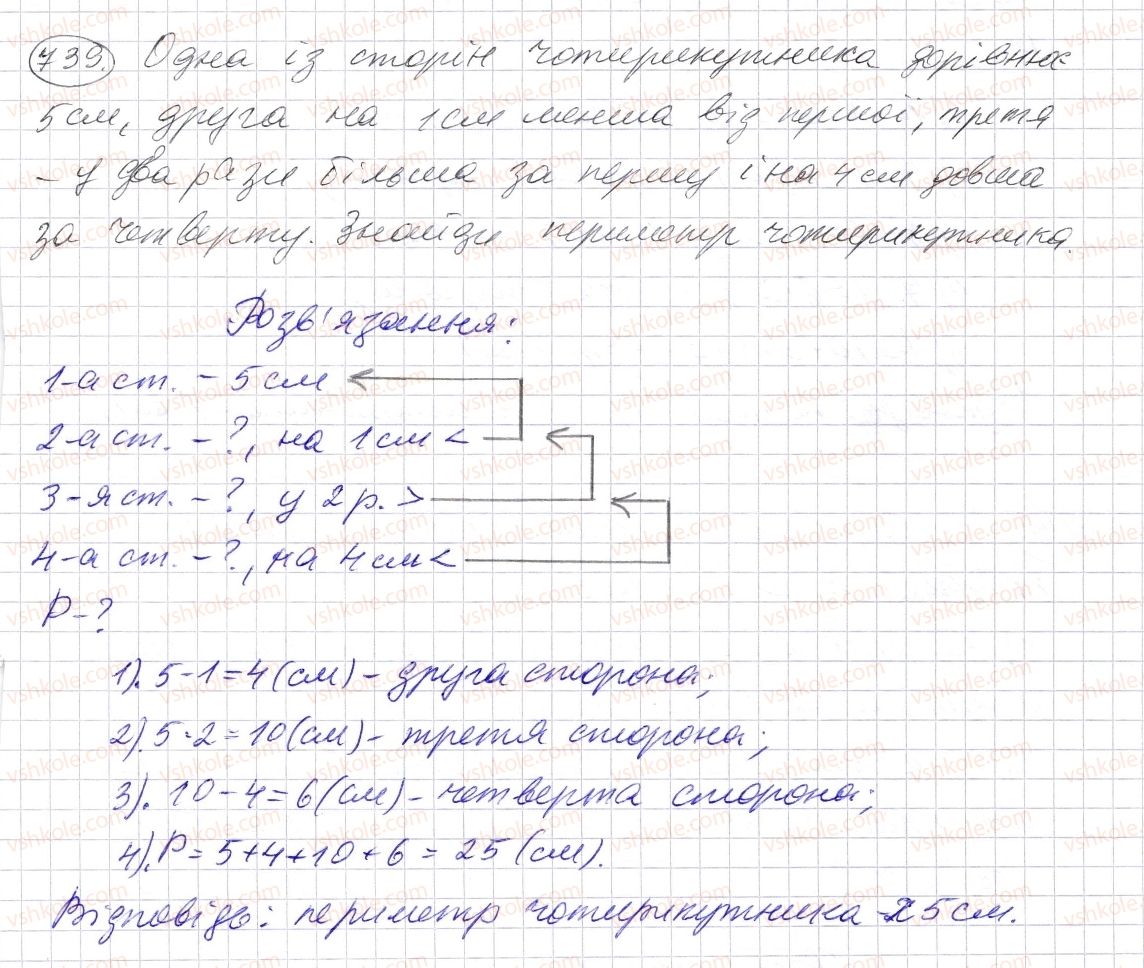 739. Одна із сторін чотирикутника дорівнює
5см, друга на 1см менша від першої, третя
– у два рази більша за першу і на 4см довша
за четверту. Знайди периметр чотирикутника.
Розв'язання:
1-а ст. – 5см
2-а ст. – ?, на 1см <
3-я ст. – ?, у 2р. >
4-а ст. – ?, на 4см <
P – ?
1). 5 - 1 = 4 (см) – друга сторона;
2). 5 · 2 = 10 (см) – третя сторона;
3). 10 - 4 = 6 (см) – четверта сторона;
4). P = 5 + 4 + 10 + 6 = 25 (см).
Відповідь: периметр чотирикутника 25см.
vshkole.com